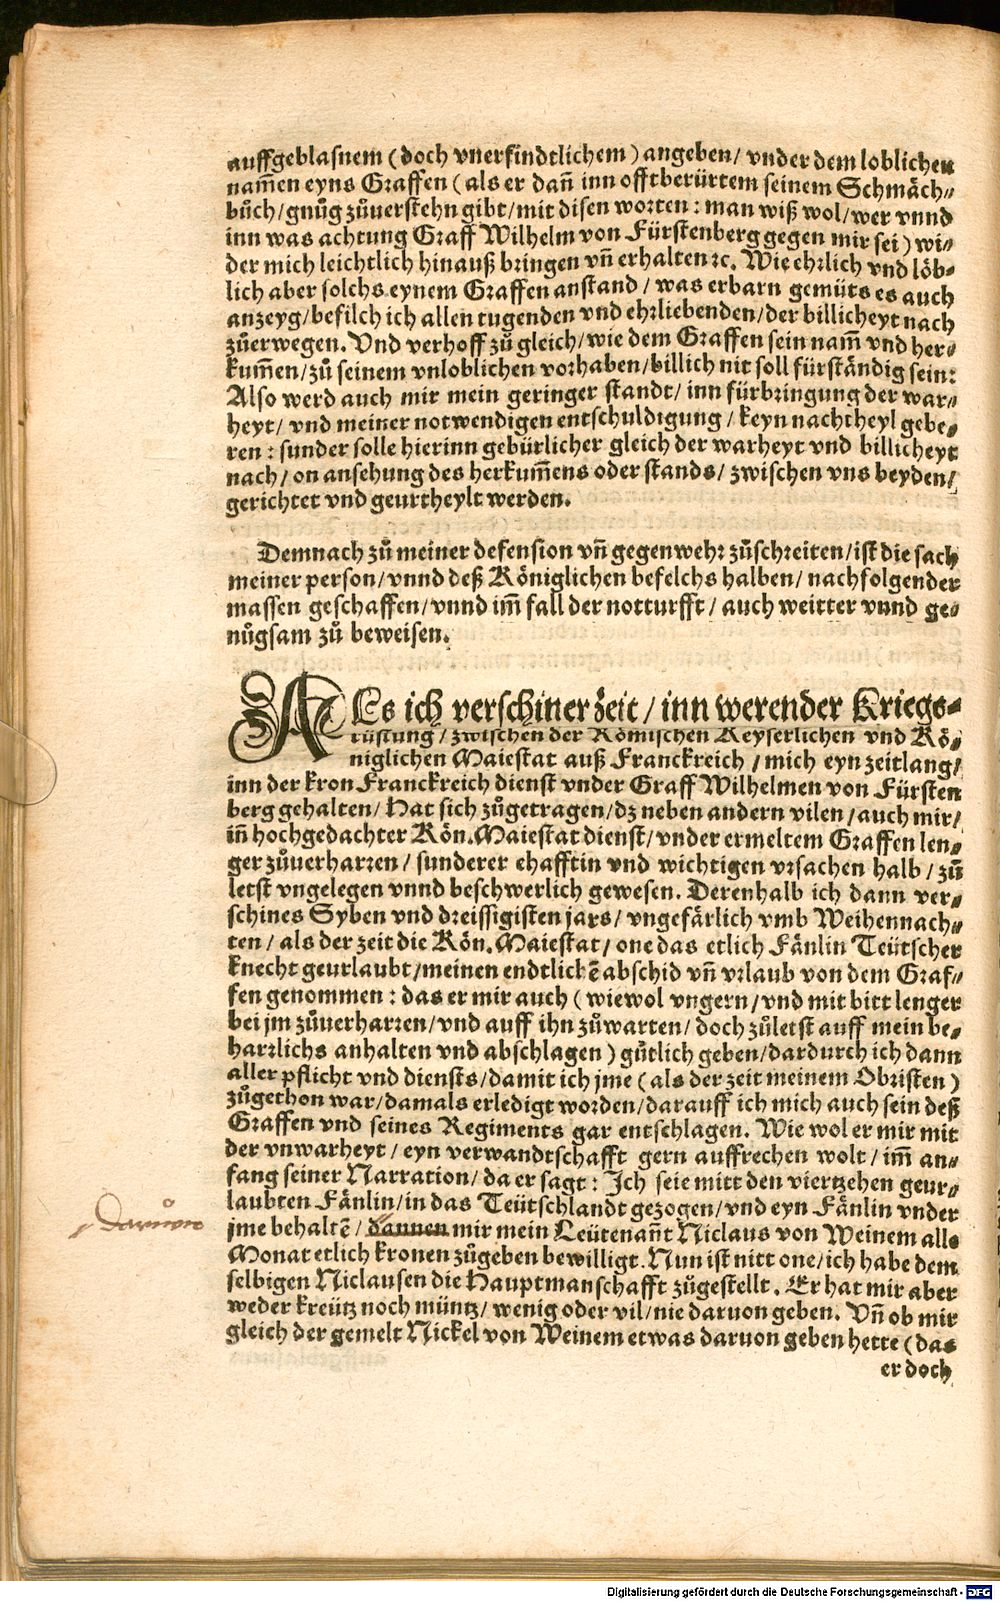 auffgeblasnem (doch vnerfindtlichem) angeben/ vnder dem loblichen
nam̃en eyns Graffen (als er dañ inn offtberürtem seinem Schmäch⸗
bůch/gnůg zůuerstehn gibt/mit disen worten: man wiß wol/wer vnnd
inn was achtung Graff Wilhelm von Fürstenberg gegen mir sei) wi⸗
der mich leichtlich hinauß bringen vñ erhalten ꝛc. Wie ehrlich vnd löb⸗
lich aber solchs eynem Graffen anstand/ was erbarn gemüts es auch
anzeyg/befilch ich allen tugenden vnd ehrliebenden/der billicheyt nach
zůerwegen. Vnd verhoff zů gleich/wie dem Graffen sein nam̃ vnd her⸗
kum̃en/zů seinem vnloblichen vorhaben/billich nit soll fürständig sein:
Also werd auch mir mein geringer standt/ inn fürbringung der war⸗
heyt/ vnd meiner notwendigen entschuldigung/ keyn nachtheyl gebe⸗
ren: sunder solle hierinn gebürlicher gleich der warheyt vnd billicheyt
nach/ on ansehung des herkum̃ens oder stands/ zwischen vns beyden/
gerichtet vnd geurtheylt werden.
Demnach zů meiner defension vñ gegenwehr zůschreiten/ist die sach
meiner person/vnnd deß Königlichen befelchs halben/ nachfolgender
massen geschaffen/vnnd im̃ fall der notturfft/ auch weitter vnnd ge⸗
nůgsam zů beweisen.
ALs ich verschiner zeit/ inn werender Kriegs⸗
rüstung/ zwischen der Römischen Keyserlichen vnd Kö⸗
niglichen Maiestat auß Franckreich/ mich eyn zeitlang/
inn der kron Franckreich dienst vnder Graff Wilhelmen von Fürsten
berg gehalten/ Hat sich zůgetragen/dz neben andern vilen/auch mir/
iñ hochgedachter Kön. Maiestat dienst/ vnder ermeltem Graffen len⸗
ger zůuerharren/ sunderer ehafftin vnd wichtigen vrsachen halb/ zů
letst vngelegen vnnd beschwerlich gewesen. Derenhalb ich dann ver⸗
schines Syben vnd dreissigisten jars/ vngefärlich vmb Weihennach⸗
ten/ als der zeit die Kön. Maiestat/ one das etlich Fänlin Teütscher
knecht geurlaubt/meinen endtlichẽ abschid vñ vrlaub von dem Graf⸗
fen genommen: das er mir auch (wiewol vngern/vnd mit bitt lenger
bei jm zůuerharren/vnd auff ihn zůwarten/ doch zůletst auff mein be⸗
harrlichs anhalten vnd abschlagen) gůtlich geben/dardurch ich dann
aller pflicht vnd diensts/damit ich jme (als der zeit meinem Obristen)
zůgethon war/damals erledigt worden/darauff ich mich auch sein deß
Graffen vnd seines Regiments gar entschlagen. Wie wol er mir mit
der vnwarheyt/ eyn verwandtschafft gern auffrechen wolt/ im̃ an⸗
fang seiner Narration/ da er sagt: Ich seie mitt den viertzehen geur⸗
laubten Fänlin/in das Teütschlandt gezogen/vnd eyn Fänlin vnder
jme behaltẽ/ dannen mir mein Leütenañt Niclaus von Weinem alle
Monat etlich kronen zůgeben bewilligt. Nun ist nitt one/ich habe dem
selbigen Niclausen die Hauptmanschafft zůgestellt. Er hat mir aber
weder kreütz noch müntz/ wenig oder vil/nie daruon geben. Vñ ob mir
gleich der gemelt Nickel von Weinem etwas daruon geben hette (das
er doch
Daruon
Digitalisierung gefördert durch die Deutsche Forschungsgemeinschaft - DFG